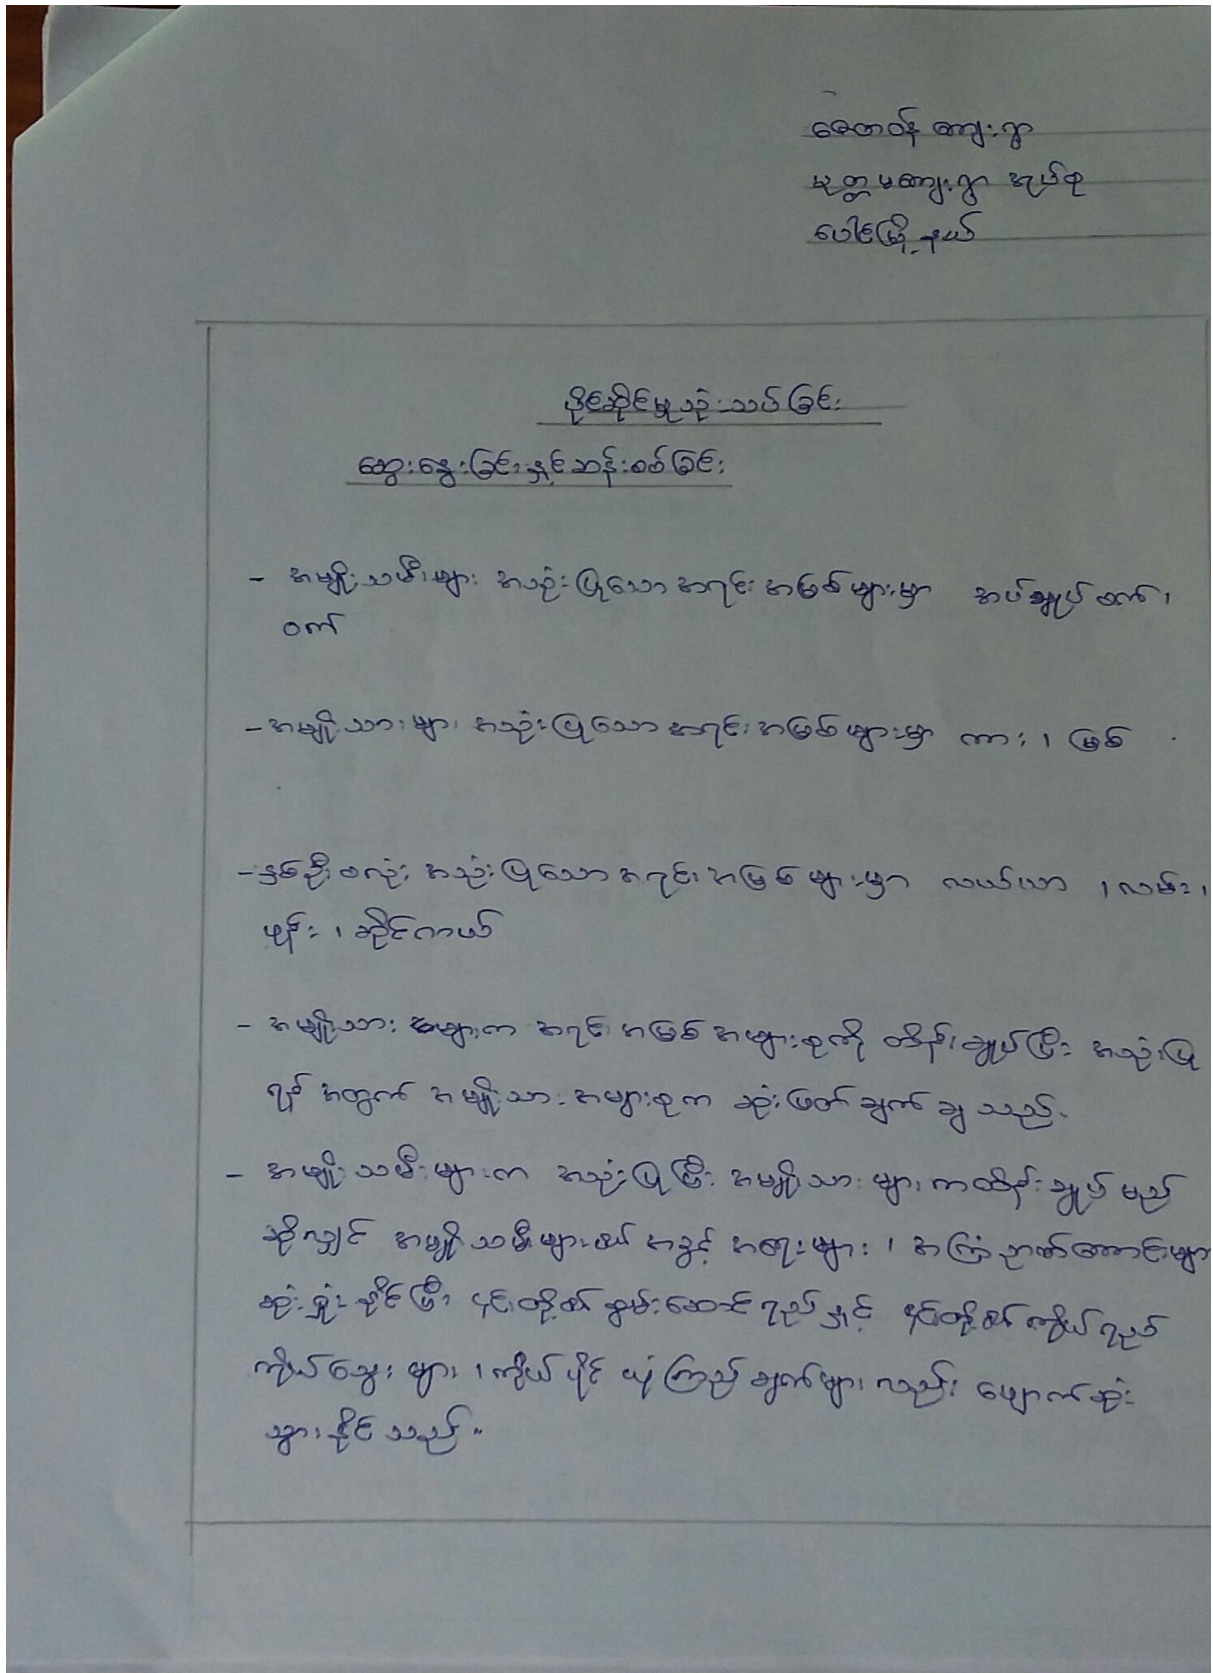 ဇေတဝန် ကျေးရွာ
မုတ္တမကျေးရွာ အုပ်စု
ပေါင်မြို့နယ်
ပိုင်ဆိုင်မှုသုံးသပ်ခြင်း
ဆွေးနွေးခြင်းနှင့်ဆန်းစစ်ခြင်း
- အမျိုးသမီးများ အသုံးပြုသောအရင်းအမြစ်များမှာ အပ်ချုပ်စက်၊
ဝက်
- အမျိုးသားများ အသုံးပြုသောအရင်းအမြစ်များမှာ ကား ၊ မြစ်
- နှစ်ဦးစလုံး အသုံးပြုသောအရင်းအမြစ်များမှာ လယ်ယာ ၊ လမ်း ၊
ဖုန်း ၊ ဆိုင်ကယ်
- အမျိုးသား များက အရင်းအမြစ်အများစုကို ထိန်းချုပ်ပြီး အသုံးပြု
ရန် အတွက် အမျိုးသား အများစုက ဆုံးဖြတ်ချက်ချ သည်။
- အမျိုးသမီးများက အသုံးပြုပြီး အမျိုးသားများကထိန်းချုပ် မည်
ဆိုလျှင် အမျိုးသမီးများ၏ အခွင့် အရေးများ ၊ အကြံဉာဏ်ကောင်းများ
ဆုံးရှုံးနိုင်ပြီး ၎င်းတို့၏ စွမ်းဆောင်ရည်နှင့် ၎င်းတို့၏ ကိုယ်ရည်
ကိုယ်သွေး များ ၊ ကိုယ်ပိုင် ယုံကြည်ချက်များ လည်း ပျောက်ဆုံး
သွားနိုင်သည်။